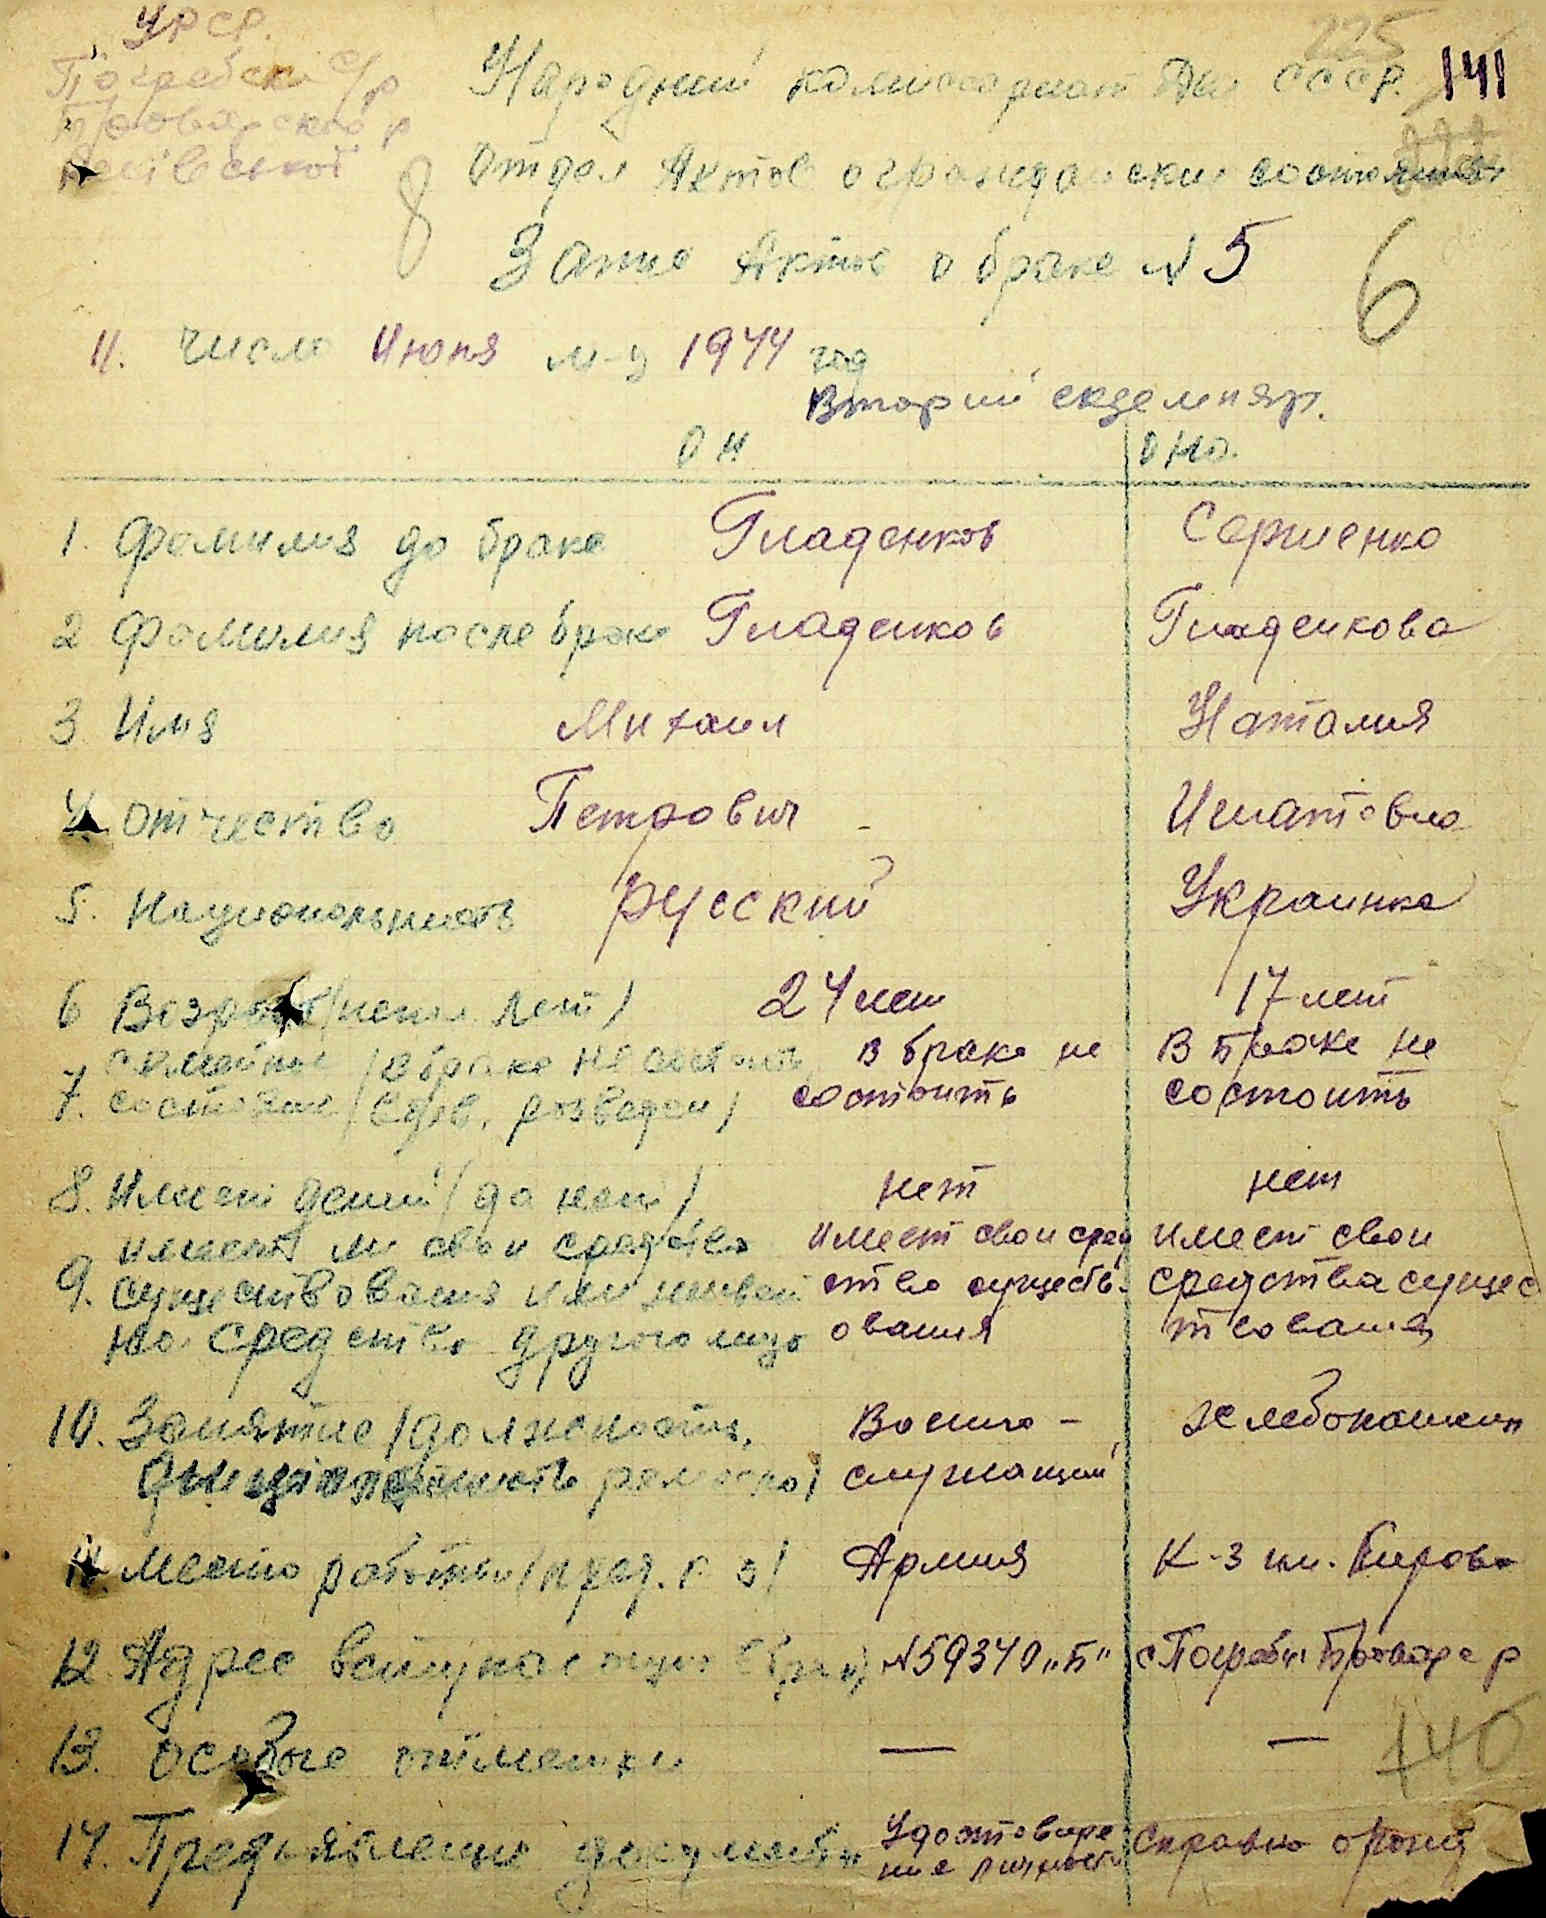 УРСР.
Погребски с/р
Броварского р
Киівськоі
225
141
Народний комиссариат Дел СССР.
Отдел Актов о гражданским состояния
8
Запис Актов о браке № 5
6
11. число Июня м-ц 1944 год
Вторий екземпяр.
он она.
1. Фамилия до брака Гладенков Сергиенко
2 Фамилия после брака Гладенков Гладенкова
3 Имя Михаил Наталия
4. отчество Петрович Игнатовна
5. Национальность русский Украинка
6 Возраст (испол. лет) 24 лет 17 лет
7. семейное состояние (в браке не состоить, вдов, розведен) в браке не состоить В браке не состоить
8. Имеет детей (да нет) нет нет
9. имеет ли свои средства существования или живет на средства другого лица имеет свои сред ства существ- ования имеет свои средства сущес твования
10. Занятие (должность, ремесло) Военно- служащий хлебопашец
11. место работы (пред. к-з) Армия К-з им. Кирова
12. Адрес вступающих №59340 „Б" с Погребы Бровар р
13. особые отметки — —
140
14. Предъявление документы Удостовере ние личности справка о рожд